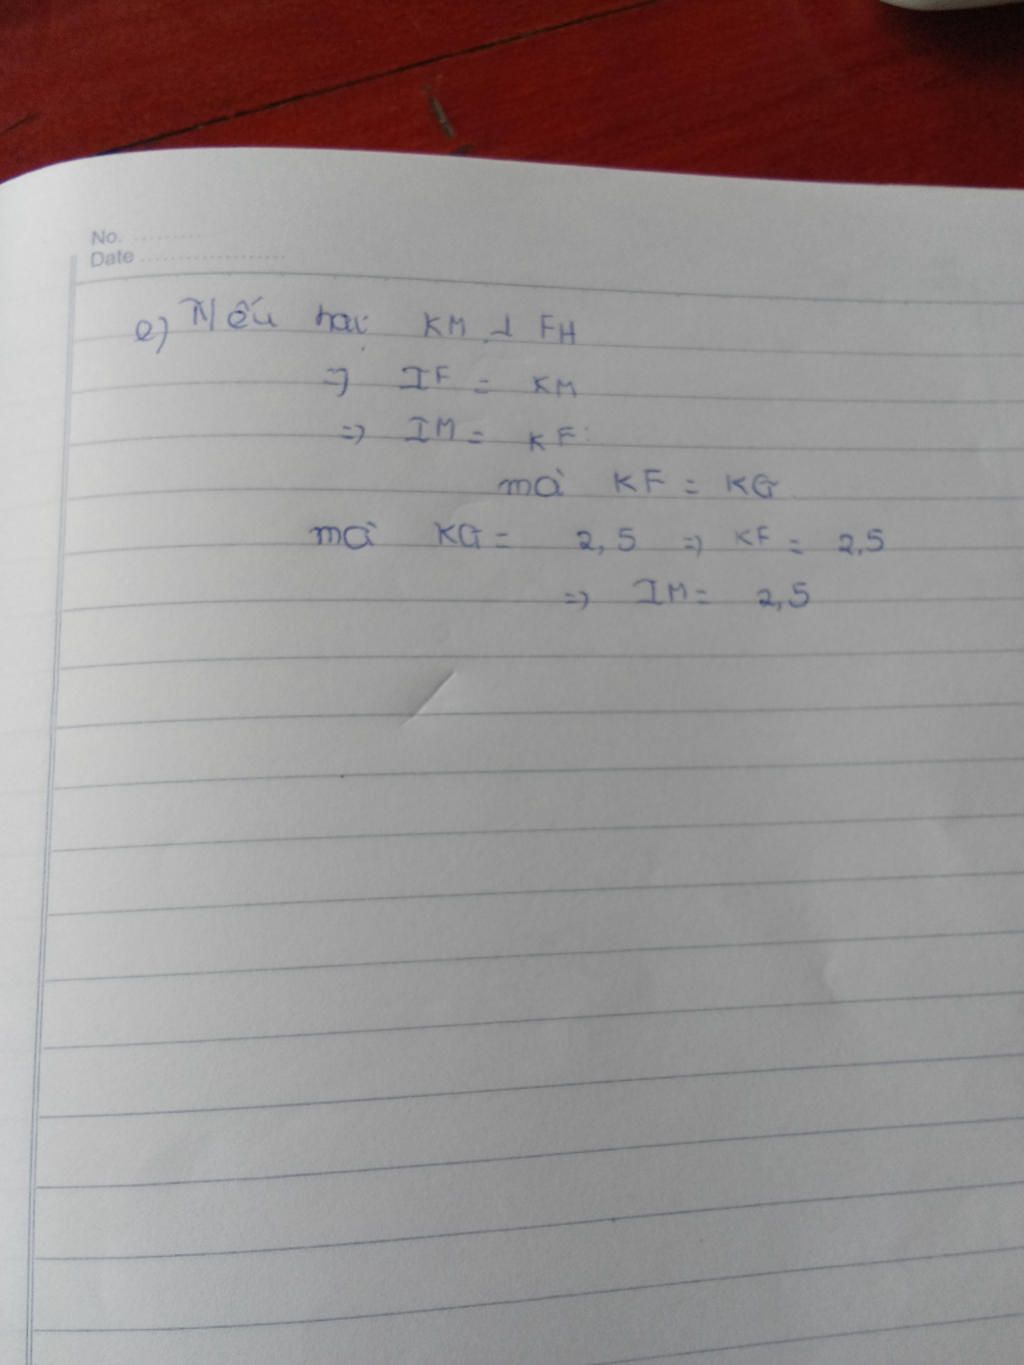 No. ..........
Date ....................
e) Nếu hai KM ⊥ FH
=> IF = KM
=> IM = KF
mà KF = KG
mà KG = 2,5 => KF = 2,5
=> IM = 2,5